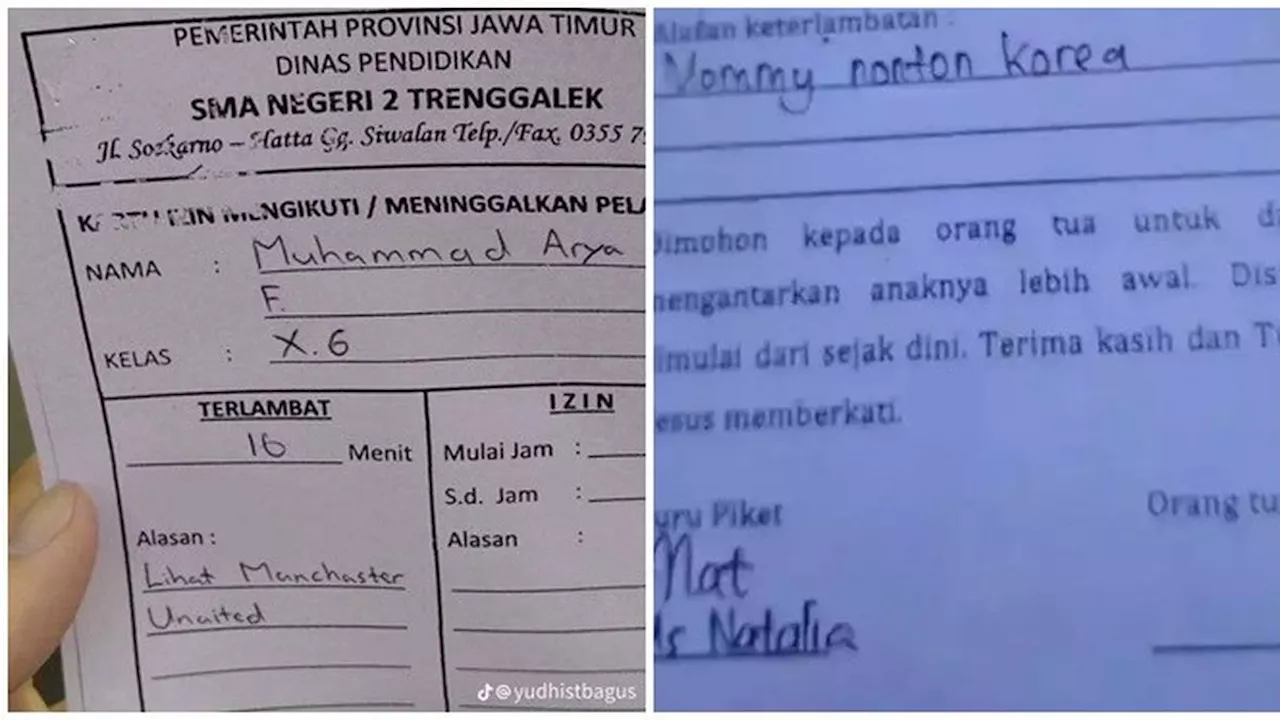 PEMERINTAH PROVINSI JAWA TIMUR
DINAS PENDIDIKAN
SMA NEGERI 2 TRENGGALEK
Jl. Soekarno – Hatta Gg. Siwalan Telp./Fax. 0355 7
IZIN MENGIKUTI / MENINGGALKAN PELA
NAMA : Muhammad Arya
F.
KELAS : X.6
TERLAMBAT
16 Menit
Alasan :
Lihat Manchaster
Unaited
IZIN
Mulai Jam :
S.d. Jam :
Alasan :
@yudhistbagus
Alasan keterlambatan :
Mommy nonton korea
Dimohon kepada orang tua untuk d
mengantarkan anaknya lebih awal. Dis
imulai dari sejak dini. Terima kasih dan T
esus memberkati.
uru Piket
Orang tu
Nat
Ms Natalia